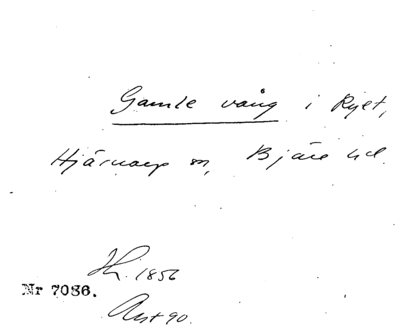 Gamle vång i Ryet,
Hjärnarp sn, Bjäre hd.
1856
Nr 7036.
90.